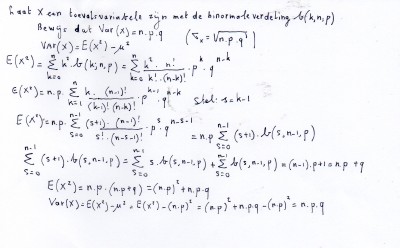 Laat X een toevalsvariabele zijn met de binormale verdeling b(k,n,p)
Bewijs dat Var(X) = n.p.q (σₓ = √n.p.q)
VAR(X) = E(X²) - μ²
E(X²) = Σ_{k=0}^{n} k². b(k; n, p) = Σ_{k=0}^{n} k². n! / k!.(n-k)! . p^k q^{n-k}
E(X²) = n.p. Σ_{k=1}^{n} k. (n-1)! / (k-1)! (n-k)! p^{k-1} . q^{n-k} Stel: s = k-1
E(X²) = n.p. Σ_{s=0}^{n-1} (s+1). (n-1)! / s!.(n-s-1)! . p^s q^{n-s-1} = n.p Σ_{s=0}^{n-1} (s+1). b(s, n-1, p)
Σ_{s=0}^{n-1} (s+1). b(s, n-1, p) = Σ_{s=0}^{n-1} s. b(s, n-1, p) + Σ_{s=0}^{n-1} b(s, n-1, p) = (n-1).p+1 = n.p + q
E(X²) = n.p.(n.p+q) = (n.p)² + n.p.q
Var(X) = E(X²) - μ² = E(X²) - (n.p)² = (n.p)² + n.p.q - (n.p)² = n.p.q